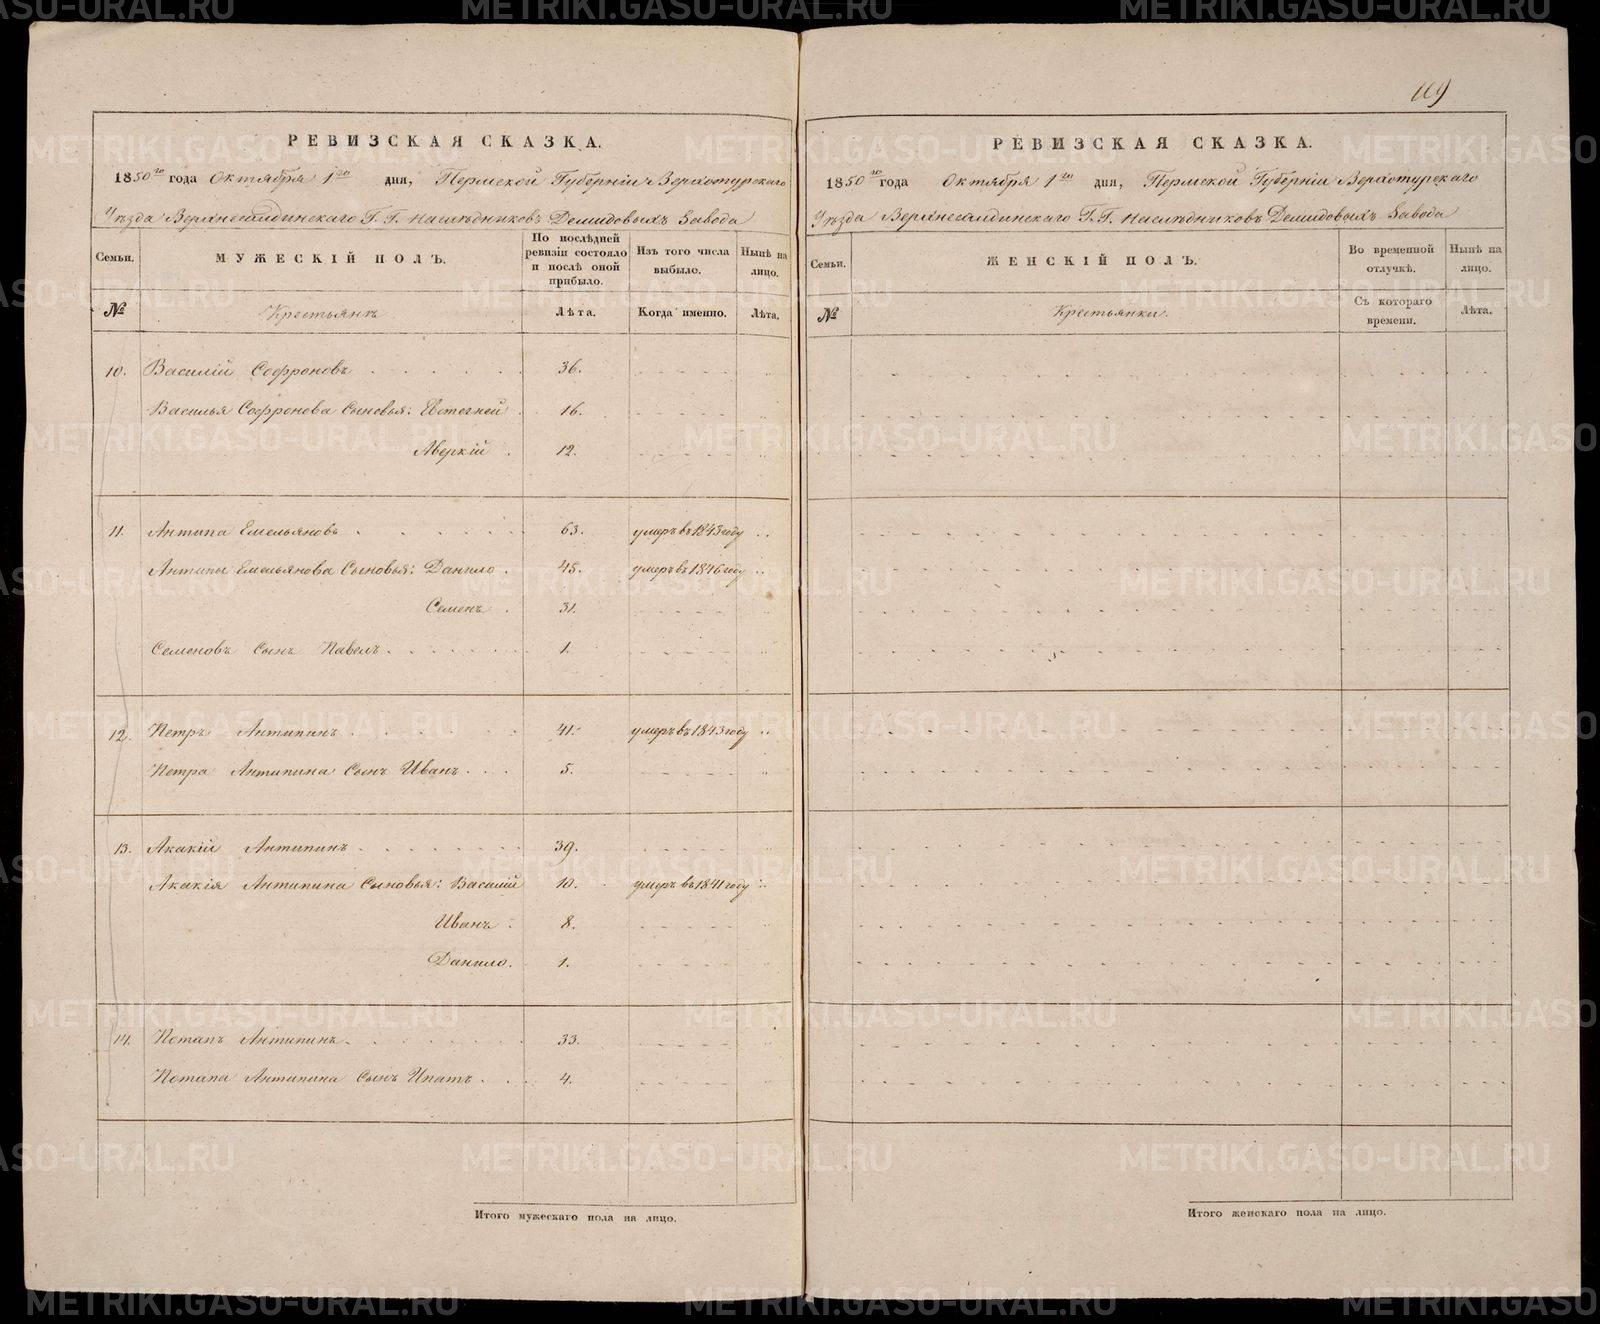 119
РЕВИЗСКАЯ СКАЗКА.
1850го года Октября 1го дня, Пермской Губерніи Верхотурскаго
Уѣзда Верхнесалдинскаго Г. Г. Наслѣдниковъ Демидовыхъ Завода
Семьи. МУЖЕСКІЙ ПОЛЪ. По послѣдней ревизіи состояло и послѣ оной прибыло. Изъ того числа выбыло. Нынѣ на лицо.
№ Крестьянъ Лѣта. Когда именно. Лѣта.
10. Василій Софроновъ 36.
Василья Софронова Сыновья: Евстегней 16.
Аверкій 12.
11. Антипа Емельяновъ 63. умеръ въ 1843 году
Антипы Емельянова Сыновья: Данило 45. умеръ въ 1846 году
Семенъ 31.
Семеновъ Сынъ Павелъ 1.
12. Петръ Антипинъ 41. умеръ въ 1843 году
Петра Антипина Сынъ Иванъ 5.
13. Акакій Антипинъ 39.
Акакія Антипина Сыновья: Василій 10. умеръ въ 1841 году
Иванъ 8.
Данило. 1.
14. Потапъ Антипинъ 33.
Потапа Антипина Сынъ Ипатъ 4.
Итого мужескаго пола на лицо.
РЕВИЗСКАЯ СКАЗКА.
1850го года Октября 1го дня, Пермской Губерніи Верхотурскаго
Уѣзда Верхнесалдинскаго Г. Г. Наслѣдниковъ Демидовыхъ Завода
Семьи. ЖЕНСКІЙ ПОЛЪ. Во временной отлучкѣ. Нынѣ на лицо.
№ Крестьянки. Съ котораго времени. Лѣта.
Итого женскаго пола на лицо.
METRIKI.GASO-URAL.RU